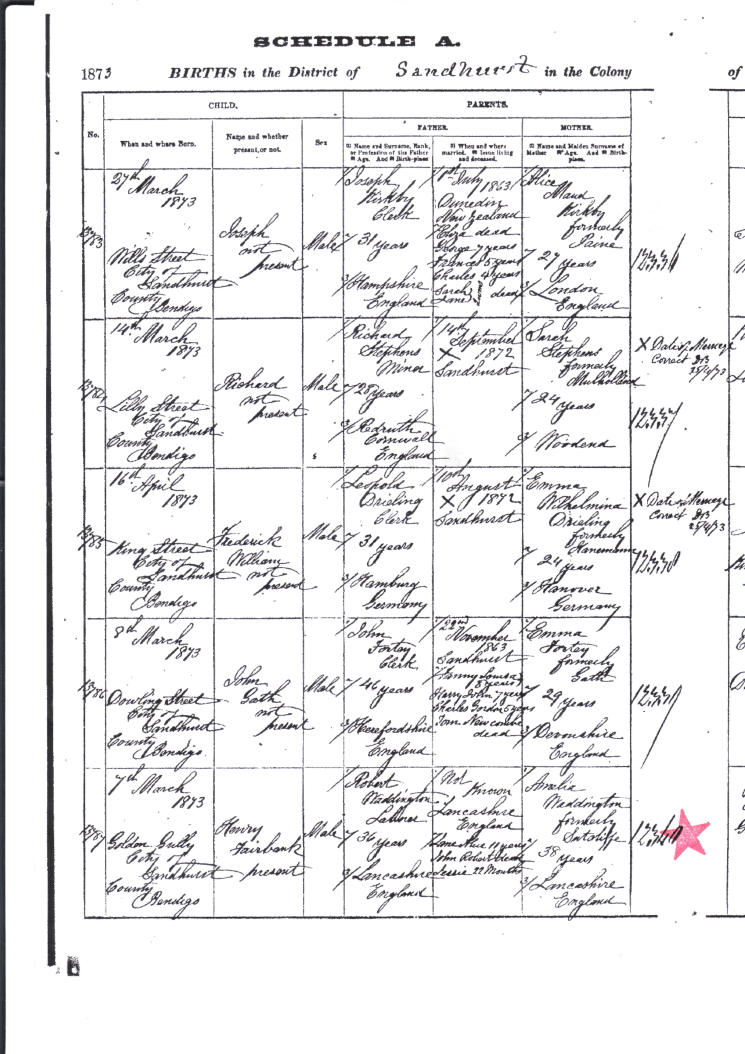 SCHEDULE A.
1873 BIRTHS in the District of Sandhurst in the Colony of
CHILD. PARENTS.
FATHER. MOTHER.
No.
When and where Born.
Name and whether present, or not.
Sex
(1) Name and Surname, Rank, or Profession of the Father (2) Age. And (3) Birth-place
(1) When and where married. (2) Issue living and deceased.
(1) Name and Maiden Surname of Mother (2) Age. And (3) Birth-place.
27th
March
1873
Wills Street
City of
Sandhurst
County
Bendigo
Joseph
not
present
Male
1/ Joseph
Kirkby
Clerk
2/ 31 years
3/ Hampshire
England
July
1863
Dunedin
New Zealand
Eliza dead
George 7 years
Frances 5 years
Charles 4 years
Sarah
Jane
dead
1/ Alice
Maud
Kirkby
formerly
Paine
2/ 27 years
3/ London
England
14th March
1873
Lilly Street
City of
Sandhurst
County
Bendigo
Richard
not
present
Male
1/ Richard
Stephens
Miner
2/ 28 years
3/ Redruth
Cornwall
England
1/ 14th
September
X 1872
Sandhurst
1/ Sarah
Stephens
formerly
Mulholland
2/ 24
years
3/ Woodend
X Date of Marriage
Correct
25/4/73
16th
April
1873
King Street
City of
Sandhurst
County
Bendigo
Frederick
William
not
present
Male
1/ Leopold
Drieling
Clerk
2/ 31 years
3/ Hamburg
Germany
1/ 10th
August
X 1872
Sandhurst
1/ Emma
Wilhelmina
Drieling
formerly
Hanemann
2/ 24
years
3/ Hanover
Germany
X Date of Marriage
Correct
25/4/73
8th
March
1873
Dowling Street
City of
Sandhurst
County
Bendigo
John
Gath
not
present
Male
1/ John
Fortey
Clerk
2/ 46 years
3/ Herefordshire
England
1/ 22nd
November
1863
Sandhurst
Fanny Louisa
8 years
Harry John 7 years
Charles Gordon 5 years
Tom Newcombe
dead
1/ Emma
Fortey
formerly
Gath
2/ 29 years
3/ Devonshire
England
7th
March
1873
Golden Gully
City of
Sandhurst
County
Bendigo
Henry
Fairbank
present
Male
1/ Robert
Waddington
Labourer
2/ 36 years
3/ Lancashire
England
1/ Not
Known
Lancashire
England
11 years
John Robert dead
Jessie 22 Months
1/ Amelia
Waddington
formerly
Sutcliffe
2/ 38
years
3/ Lancashire
England